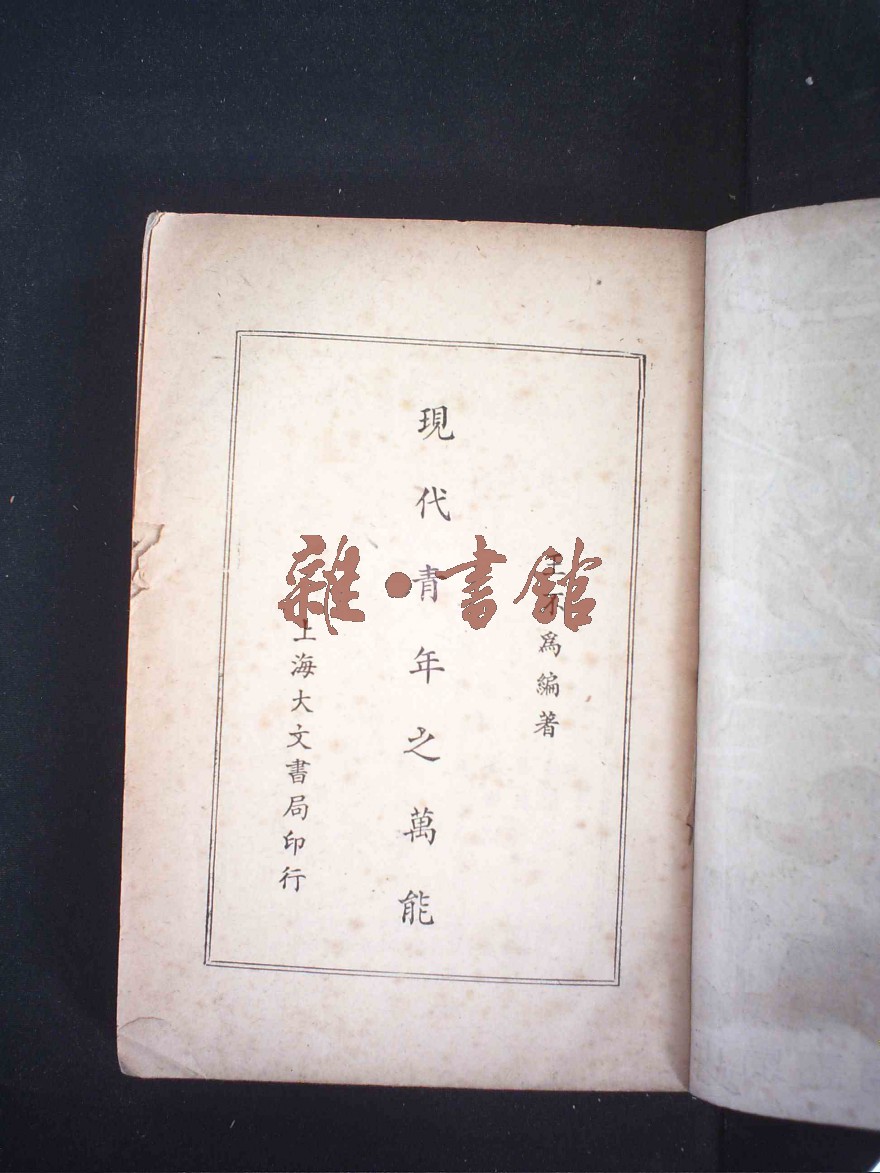 為編著
現代青年之萬能
上海大文書局印行
雜·書館